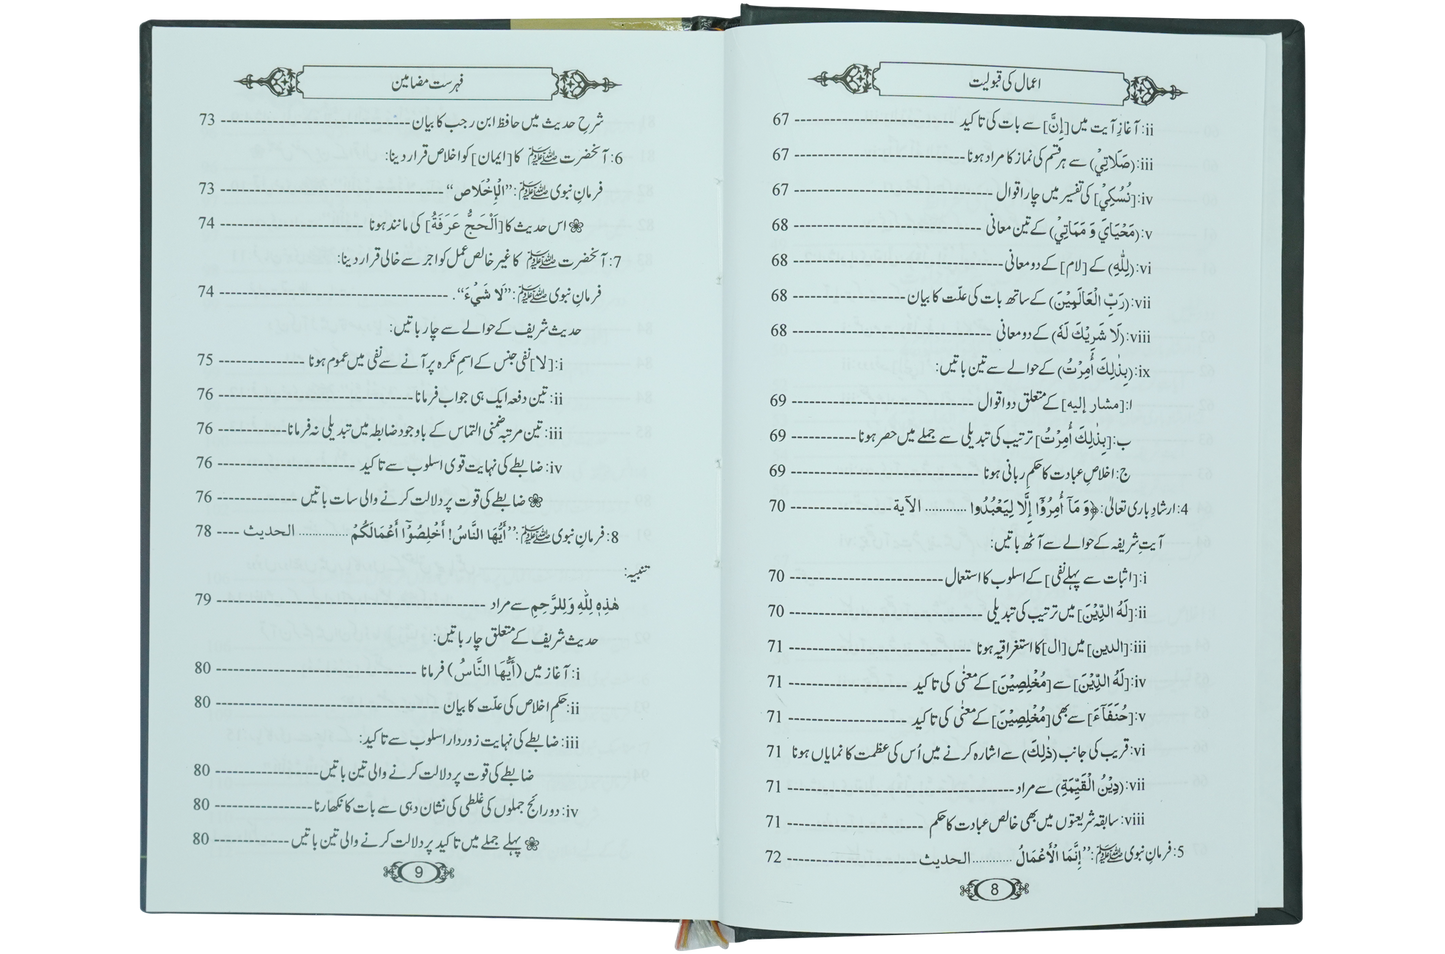 اعمال کی قبولیت
ii: آغازِ آیت میں [إِنَّ] سے بات کی تاکید ---------- 67
iii: (صَلَاتِيْ) سے ہر قسم کی نماز کا مراد ہونا ---------- 67
iv: [نُسُكِيْ] کی تفسیر میں چار اقوال ---------- 67
v: (مَحْيَايَ وَ مَمَاتِيْ) کے تین معانی ---------- 68
vi: (لِلّٰهِ) کے [لام] کے دو معانی ---------- 68
vii: (رَبِّ الْعَالَمِيْنَ) کے ساتھ بات کی علّت کا بیان ---------- 68
viii: (لَا شَرِيْكَ لَهُ) کے دو معانی ---------- 68
ix: (بِذٰلِكَ أُمِرْتُ) کے حوالے سے تین باتیں:
ا: [مشار إليه] کے متعلق دو اقوال ---------- 69
ب: [بِذٰلِكَ أُمِرْتُ] ترتیب کی تبدیلی سے جملے میں حصر ہونا ---------- 69
ج: اخلاصِ عبادت کا حکمِ ربانی ہونا ---------- 69
4: ارشادِ باری تعالیٰ: ﴿وَ مَآ أُمِرُوْٓا إِلَّا لِيَعْبُدُوا ........... الآية ---------- 70
آیتِ شریفہ کے حوالے سے آٹھ باتیں:
i: [اثبات سے پہلے نفی] کے اسلوب کا استعمال ---------- 70
ii: [لَهُ الدِّيْنَ] میں ترتیب کی تبدیلی ---------- 70
iii: [الدين] میں [ال] کا استغراقیہ ہونا ---------- 71
iv: [لَهُ الدِّيْنَ] سے [مُخْلِصِيْنَ] کے معنیٰ کی تاکید ---------- 71
v: [حُنَفَآءَ] سے بھی [مُخْلِصِيْنَ] کے معنیٰ کی تاکید ---------- 71
vi: قریب کی جانب (ذٰلِكَ) سے اشارہ کرنے میں اُس کی عظمت کا نمایاں ہونا 71
vii: (دِيْنُ الْقَيِّمَةِ) سے مراد ---------- 71
viii: سابقہ شریعتوں میں بھی خالص عبادت کا حکم ---------- 71
5: فرمانِ نبوی ﷺ: ’’إِنَّمَا الْأَعْمَالُ ........... الحديث ---------- 72
8
فہرست مضامین
شرحِ حدیث میں حافظ ابن رجب کا بیان ---------- 73
6: آنحضرت ﷺ کا [ایمان] کو اخلاص قرار دینا:
فرمانِ نبوی ﷺ: ’’الْإِخْلَاص‘‘ ---------- 73
❀ اس حدیث کا [اَلْحَجُّ عَرَفَةُ] کی مانند ہونا ---------- 74
7: آنحضرت ﷺ کا غیر خالص عمل کو اجر سے خالی قرار دینا:
فرمانِ نبوی ﷺ: ’’لَا شَيْءَ‘‘. ---------- 74
حدیث شریف کے حوالے سے چار باتیں:
i: [لا] نفی جنس کے اسمِ نکرہ پر آنے سے نفی میں عموم ہونا ---------- 75
ii: تین دفعہ ایک ہی جواب فرمانا ---------- 76
iii: تین مرتبہ ضمنی التماس کے باوجود ضابطہ میں تبدیلی نہ فرمانا ---------- 76
iv: ضابطے کی نہایت قوی اسلوب سے تاکید ---------- 76
❀ ضابطے کی قوت پر دلالت کرنے والی سات باتیں ---------- 76
8: فرمانِ نبوی ﷺ: ’’أَيُّهَا النَّاسُ! أَخْلِصُوْٓا أَعْمَالَكُمْ ............. الحديث ---- 78
تنبیہ:
هٰذِهٖ لِلّٰهِ وَلِلرَّحِمِ سے مراد ---------- 79
حدیث شریف کے متعلق چار باتیں:
i: آغاز میں (أَيُّهَا النَّاسُ) فرمانا ---------- 80
ii: حکمِ اخلاص کی علّت کا بیان ---------- 80
iii: ضابطے کی نہایت زوردار اسلوب سے تاکید:
ضابطے کی قوت پر دلالت کرنے والی تین باتیں ---------- 80
iv: دو رائج جملوں کی غلطی کی نشان دہی سے بات کا نکھارنا ---------- 80
❀ پہلے جملے میں تاکید پر دلالت کرنے والی تین باتیں ---------- 80
9